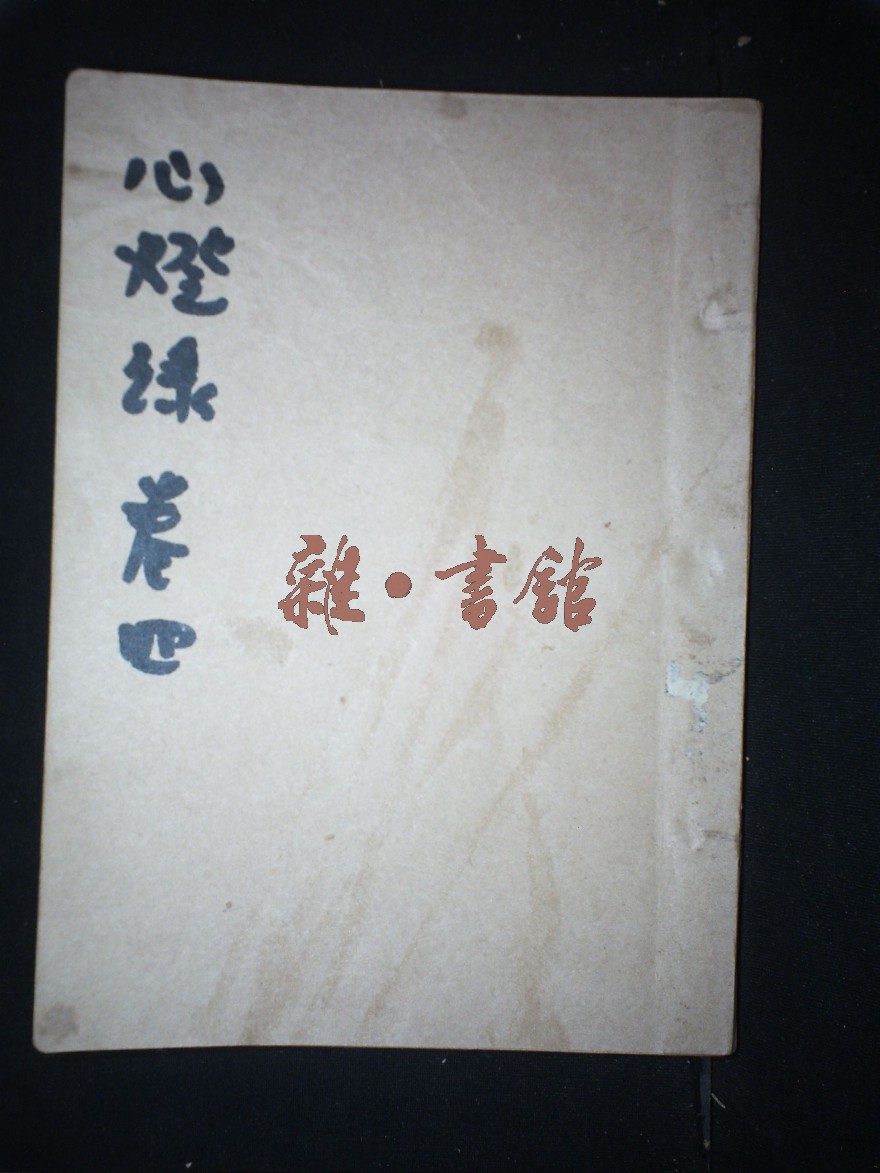 心燈錄 卷四
雜·書館